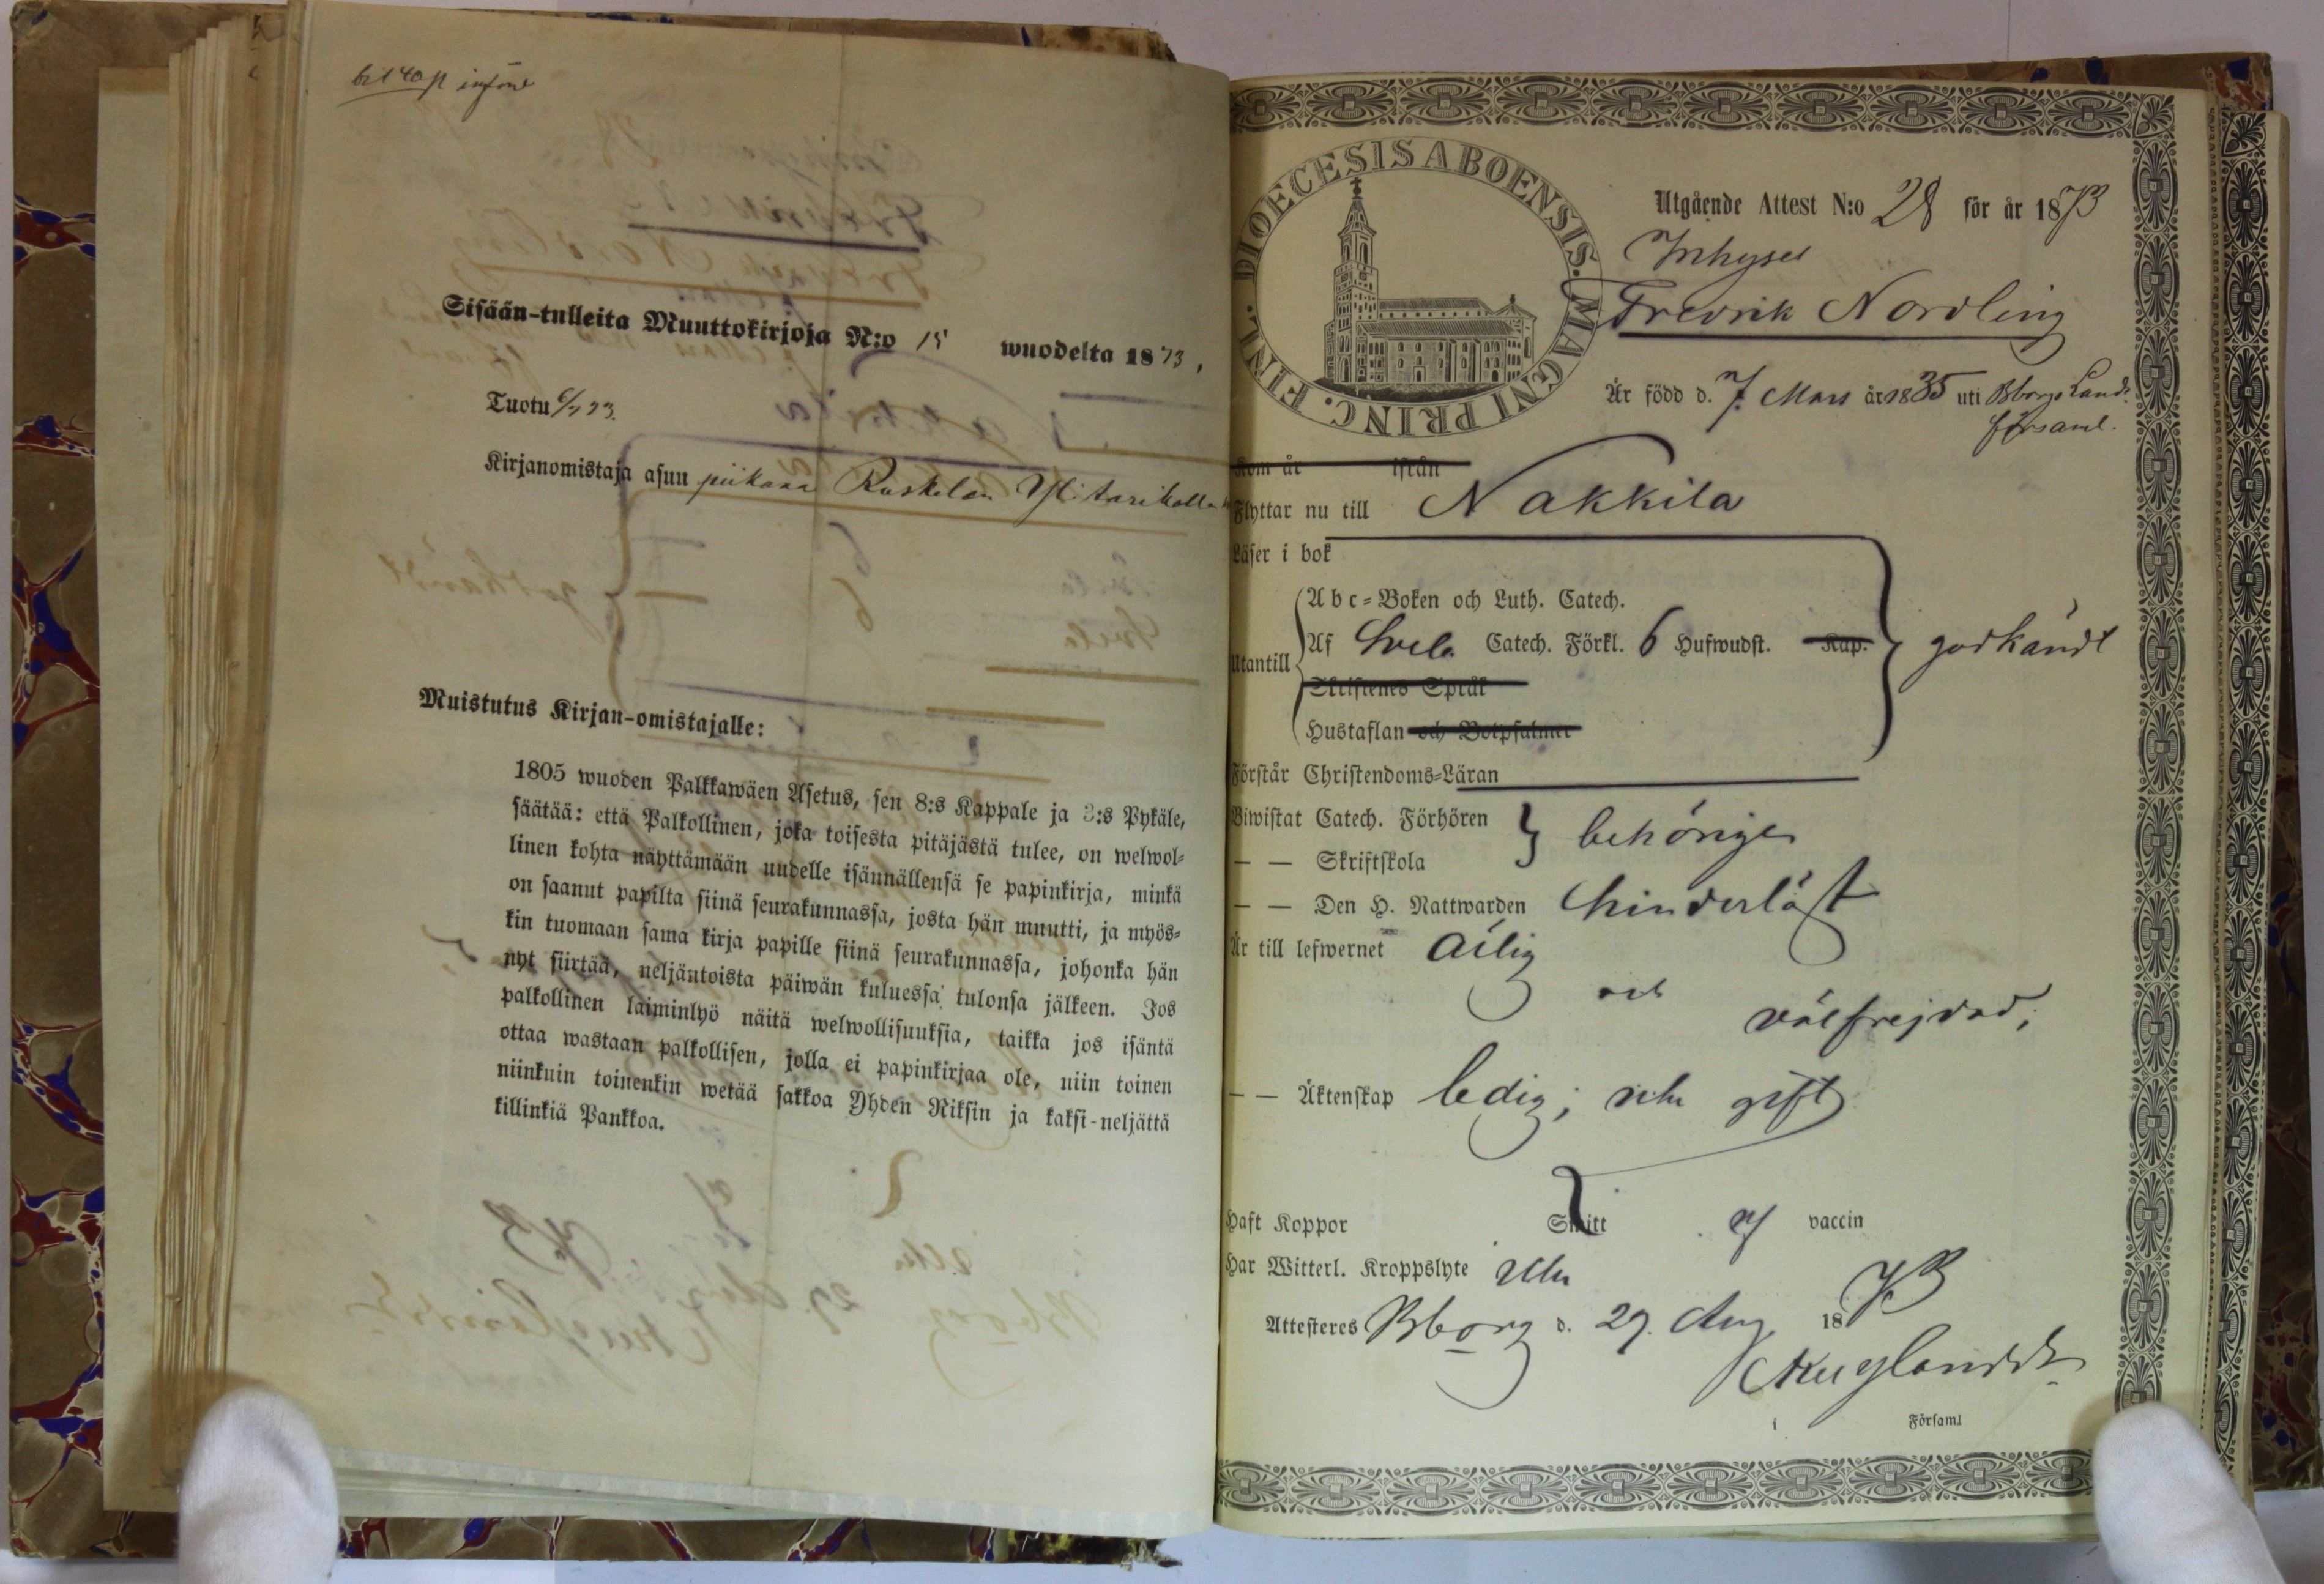 införd
Sisään-tulleita Muuttokirjoja N:o 15 wuodelta 1873,
Tuotu
Kirjanomistaja asuu piikana Ruskelan
Muistutus Kirjan-omistajalle:
1805 wuoden Palkkawäen Asetus, sen 8:s Kappale ja 3:s Pykäle,
säätää: että Palkollinen, joka toisesta pitäjästä tulee, on welwol-
linen kohta näyttämään uudelle isännällensä se papinkirja, minkä
on saanut papilta siinä seurakunnassa, josta hän muutti, ja myös-
kin tuomaan sama kirja papille siinä seurakunnassa, johonka hän
nyt siirtää, neljäntoista päiwän kuluessa tulonsa jälkeen. Jos
palkollinen laiminlyö näitä welwollisuuksia, taikka jos isäntä
ottaa wastaan palkollisen, jolla ei papinkirjaa ole, niin toinen
niinkuin toinenkin wetää sakkoa Yhden Riksin ja kaksi-neljättä
killinkiä Pankkoa.
DIOECESIS ABOENSIS. MAGNI PRINC. FINL.
Utgående Attest N:o 28 för år 1873
Inhyses
Fredrik Nordling
Är född d. 7 Mars år 1835 uti Bborgs Land
församl.
Kom år ifrån
Flyttar nu till Nakkila
Läser i bok
Abc-Boken och Luth. Catech.
Utantill Af Svel. Catech. Förkl. 6 Hufwudst. Kap. godkändt
Skriftenes Språk
Hustaflan och Botpsalmer
Förstår Christendoms-Läran
Biwistat Catech. Förhören behörigen
— — Skriftskola
— — Den H. Nattwarden hinderlöst
Är till lefwernet ärlig
och
välfrejdad;
— — Äktenskap ledig; icke gift
Haft Koppor Smitt af vaccin
Har Witterl. Kroppslyte icke
Attesteres Bborg d. 29. Aug. 1873
i Församl